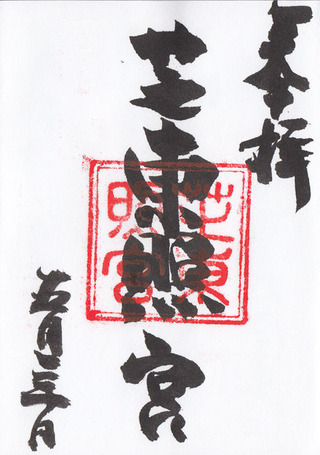 奉拝
芝東照宮
芝東照宮
五月三日